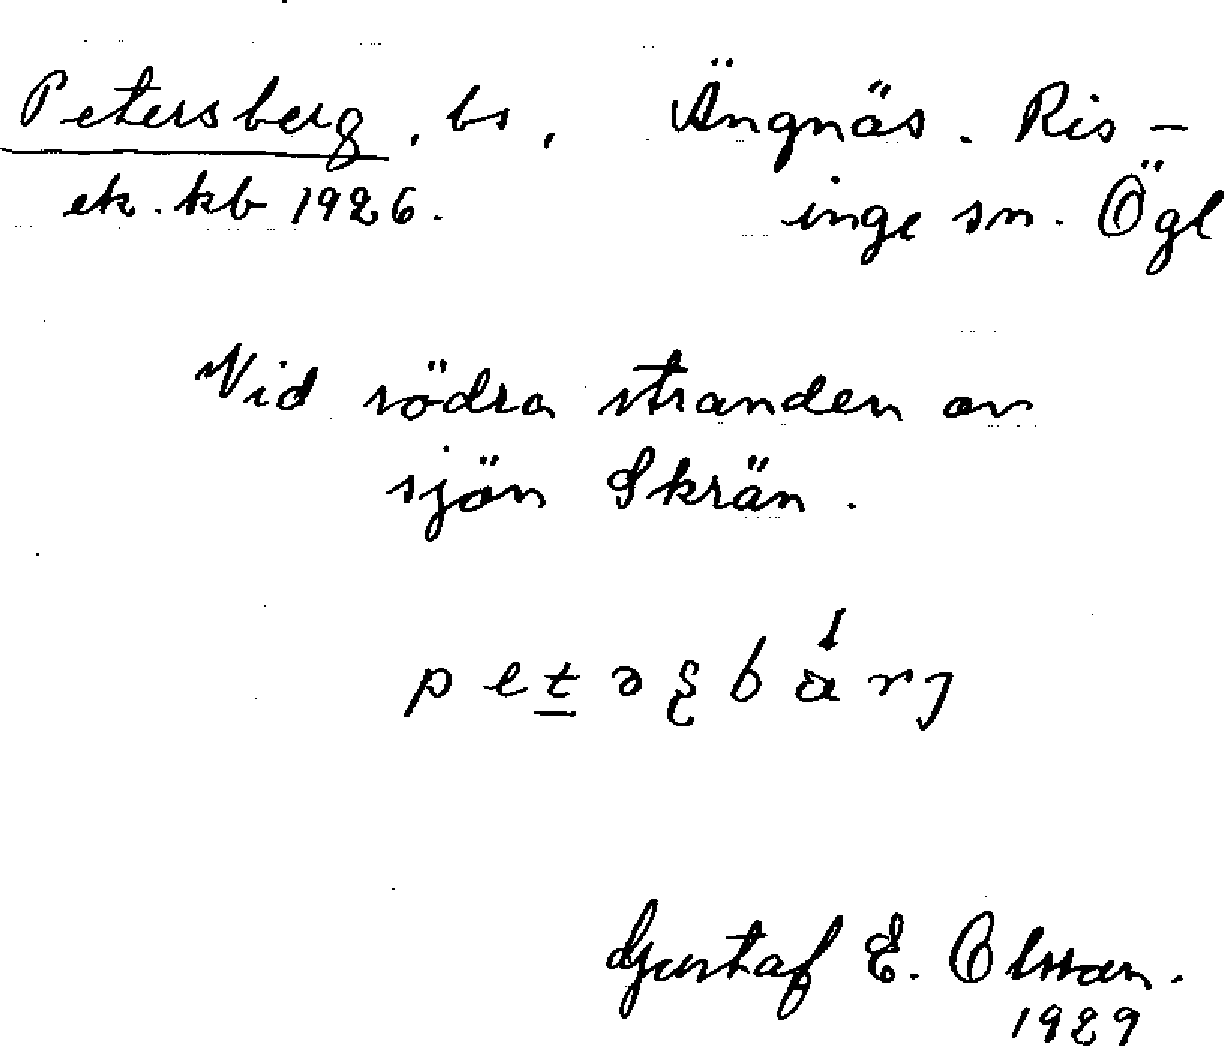 Petersberg, bs, Ängnäs. Ris-
ek. kb 1926. inge sn. Ögl
Vid södra stranden av
sjön Skrän.
Gustaf E. Olsson.
1929